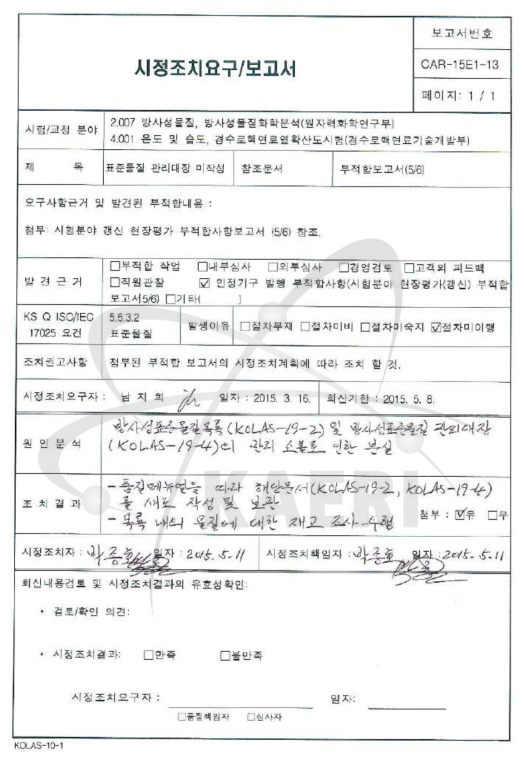 보고서번호
시정조치요구/보고서
CAR-15E1-13
페이지: 1 / 1
시험/교정 분야
2.007 방사성물질, 방사성물질화학분석(원자력화학연구부)
4.001 온도 및 습도, 경수로핵연료열확산도시험(경수로핵연료기술개발부)
제 목 표준물질 관리대장 미작성 참조문서 부적합보고서(5/6)
요구사항근거 및 발견된 부적합내용 :
첨부: 시험분야 갱신 현장평가 부적합사항보고서 (5/6) 참조.
발견근거
□부적합 작업 □내부심사 □외부심사 □경영검토 □고객의 피드백
□직원관찰 ☑ 인정기구 발행 부적합사항(시험분야 현장평가(갱신) 부적합
보고서5/6) □기타( )
KS Q ISO/IEC
17025 요건
5.6.3.2
표준물질
발생이유 □절차부재 □절차미비 □절차미숙지 ☑절차미이행
조치권고사항 첨부된 부적합 보고서의 시정조치계획에 따라 조치 할 것.
시정조치요구자 : 남지희 일자 : 2015. 3. 16. 회신기한 : 2015. 5. 8.
원인분석
방사성표준물질목록(KOLAS-19-2) 및 방사성표준물질 관리대장
(KOLAS-19-4)의 관리 소홀로 인한 분실
조치결과
- 품질메뉴얼을 따라 해당문서(KOLAS-19-2, KOLAS-19-4)
를 새로 작성 및 보관
- 목록 내의 물질에 대한 재고 조사 수행
첨부 : ☑유 □무
시정조치자 : 박종호 일자 : 2015. 5. 11 시정조치책임자 : 박준호 일자 : 2015. 5. 11
회신내용검토 및 시정조치결과의 유효성확인:
• 검토/확인 의견:
• 시정조치결과: □만족 □불만족
시정조치요구자 : 일자:
□품질책임자 □심사자
KOLAS-10-1
KAERI